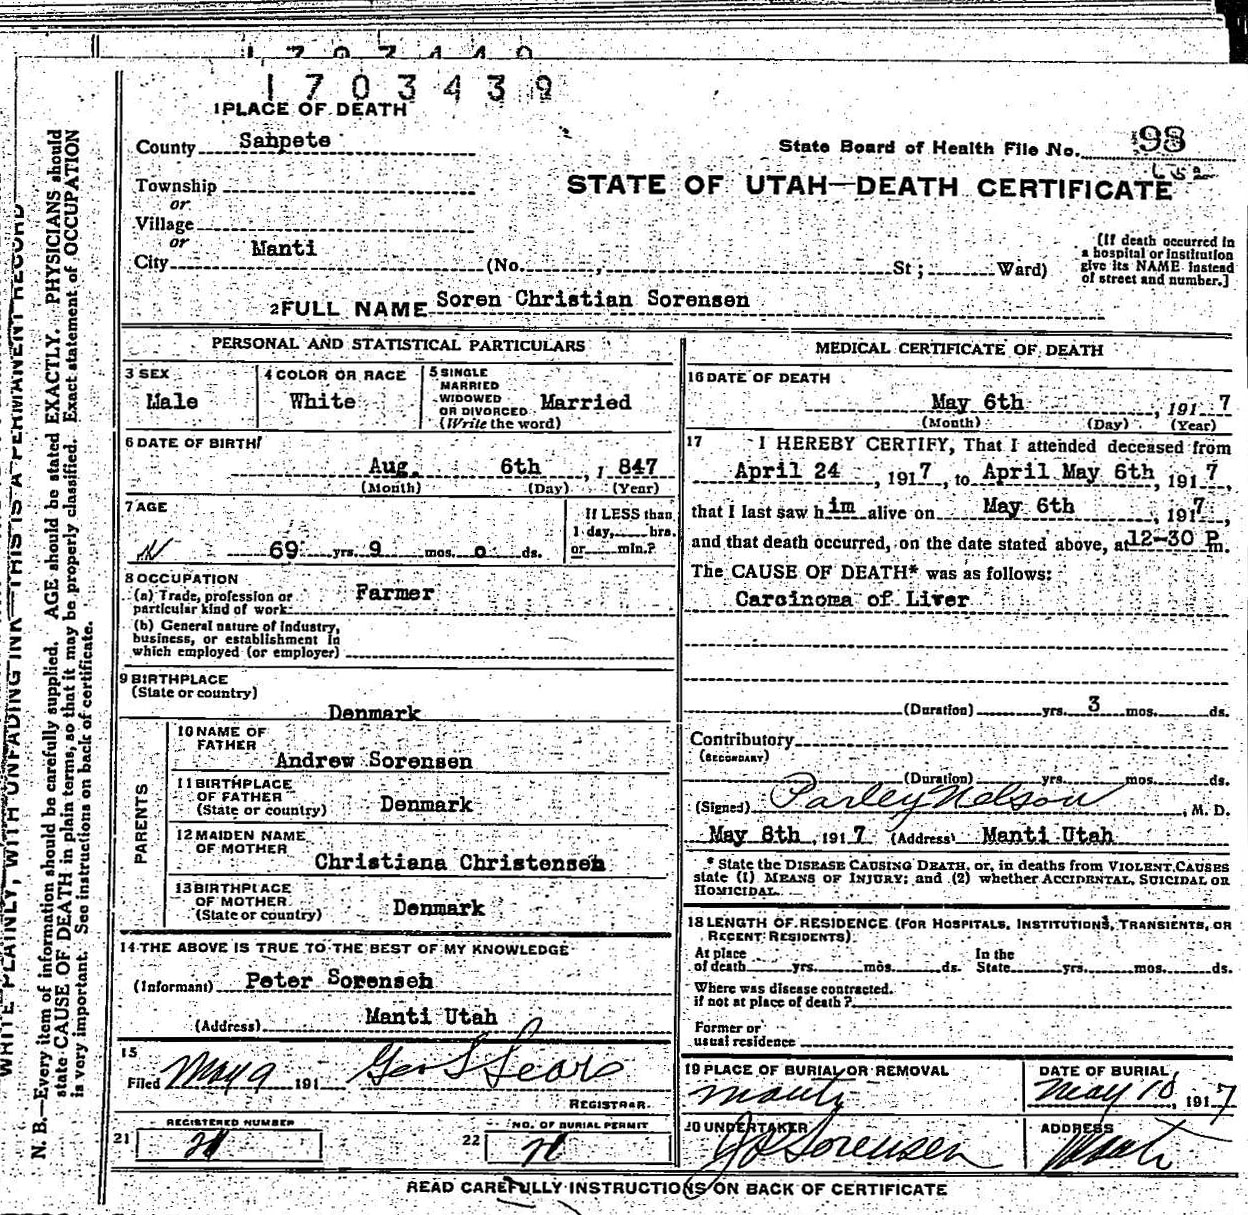 1703439
1 PLACE OF DEATH
County Sahpete
State Board of Health File No. 93
Township
or
Village
or
City Manti (No. , St ; Ward)
STATE OF UTAH—DEATH CERTIFICATE
(If death occurred in
a hospital or institution
give its NAME instead
of street and number.]
2 FULL NAME Soren Christian Sorensen
PERSONAL AND STATISTICAL PARTICULARS
3 SEX
Male
4 COLOR OR RACE
White
5 SINGLE
MARRIED
WIDOWED
OR DIVORCED
(Write the word)
Married
6 DATE OF BIRTH
Aug. 6th , 1 847
(Month) (Day) (Year)
7 AGE
69 yrs. 9 mos. 0 ds.
If LESS than
1 day, hrs.
or min.?
8 OCCUPATION
(a) Trade, profession or
particular kind of work
Farmer
(b) General nature of industry,
business, or establishment in
which employed (or employer)
9 BIRTHPLACE
(State or country)
Denmark
PARENTS
10 NAME OF
FATHER
Andrew Sorensen
11 BIRTHPLACE
OF FATHER
(State or country)
Denmark
12 MAIDEN NAME
OF MOTHER
Christiana Christensen
13 BIRTHPLACE
OF MOTHER
(State or country)
Denmark
14 THE ABOVE IS TRUE TO THE BEST OF MY KNOWLEDGE
(Informant) Peter Sorenseh
(Address) Manti Utah
15
Filed May 9 191 Geo S Sears
REGISTRAR.
REGISTERED NUMBER
21
NO. OF BURIAL PERMIT
22
MEDICAL CERTIFICATE OF DEATH
16 DATE OF DEATH
May 6th , 191 7
(Month) (Day) (Year)
17 I HEREBY CERTIFY, That I attended deceased from
April 24 , 1917, to April May 6th , 191 7,
that I last saw him alive on May 6th , 1917,
and that death occurred, on the date stated above, at 12-30 P m.
The CAUSE OF DEATH* was as follows:
Carcinoma of Liver
(Duration) yrs. 3 mos. ds.
Contributory
(SECONDARY)
(Duration) yrs. mos. ds.
(Signed) Parley Nelson , M. D.
May 8th , 191 7 (Address) Manti Utah
* State the DISEASE CAUSING DEATH, or, in deaths from VIOLENT CAUSES
state (1) MEANS OF INJURY; and (2) whether ACCIDENTAL, SUICIDAL OR
HOMICIDAL.
18 LENGTH OF RESIDENCE (FOR HOSPITALS, INSTITUTIONS, TRANSIENTS, OR
RECENT RESIDENTS)
At place
of death yrs. mos. ds.
In the
State yrs. mos. ds.
Where was disease contracted.
if not at place of death?
Former or
usual residence
19 PLACE OF BURIAL OR REMOVAL
Manti
DATE OF BURIAL
May 10, 1917
20 UNDERTAKER
Sorensen
ADDRESS
Manti
READ CAREFULLY INSTRUCTIONS ON BACK OF CERTIFICATE
WRITE PLAINLY, WITH UNFADING INK—THIS IS A PERMANENT RECORD
N. B.—Every item of information should be carefully supplied. AGE should be stated EXACTLY. PHYSICIANS should
state CAUSE OF DEATH in plain terms, so that it may be properly classified. Exact statement of OCCUPATION
is very important. See instructions on back of certificate.